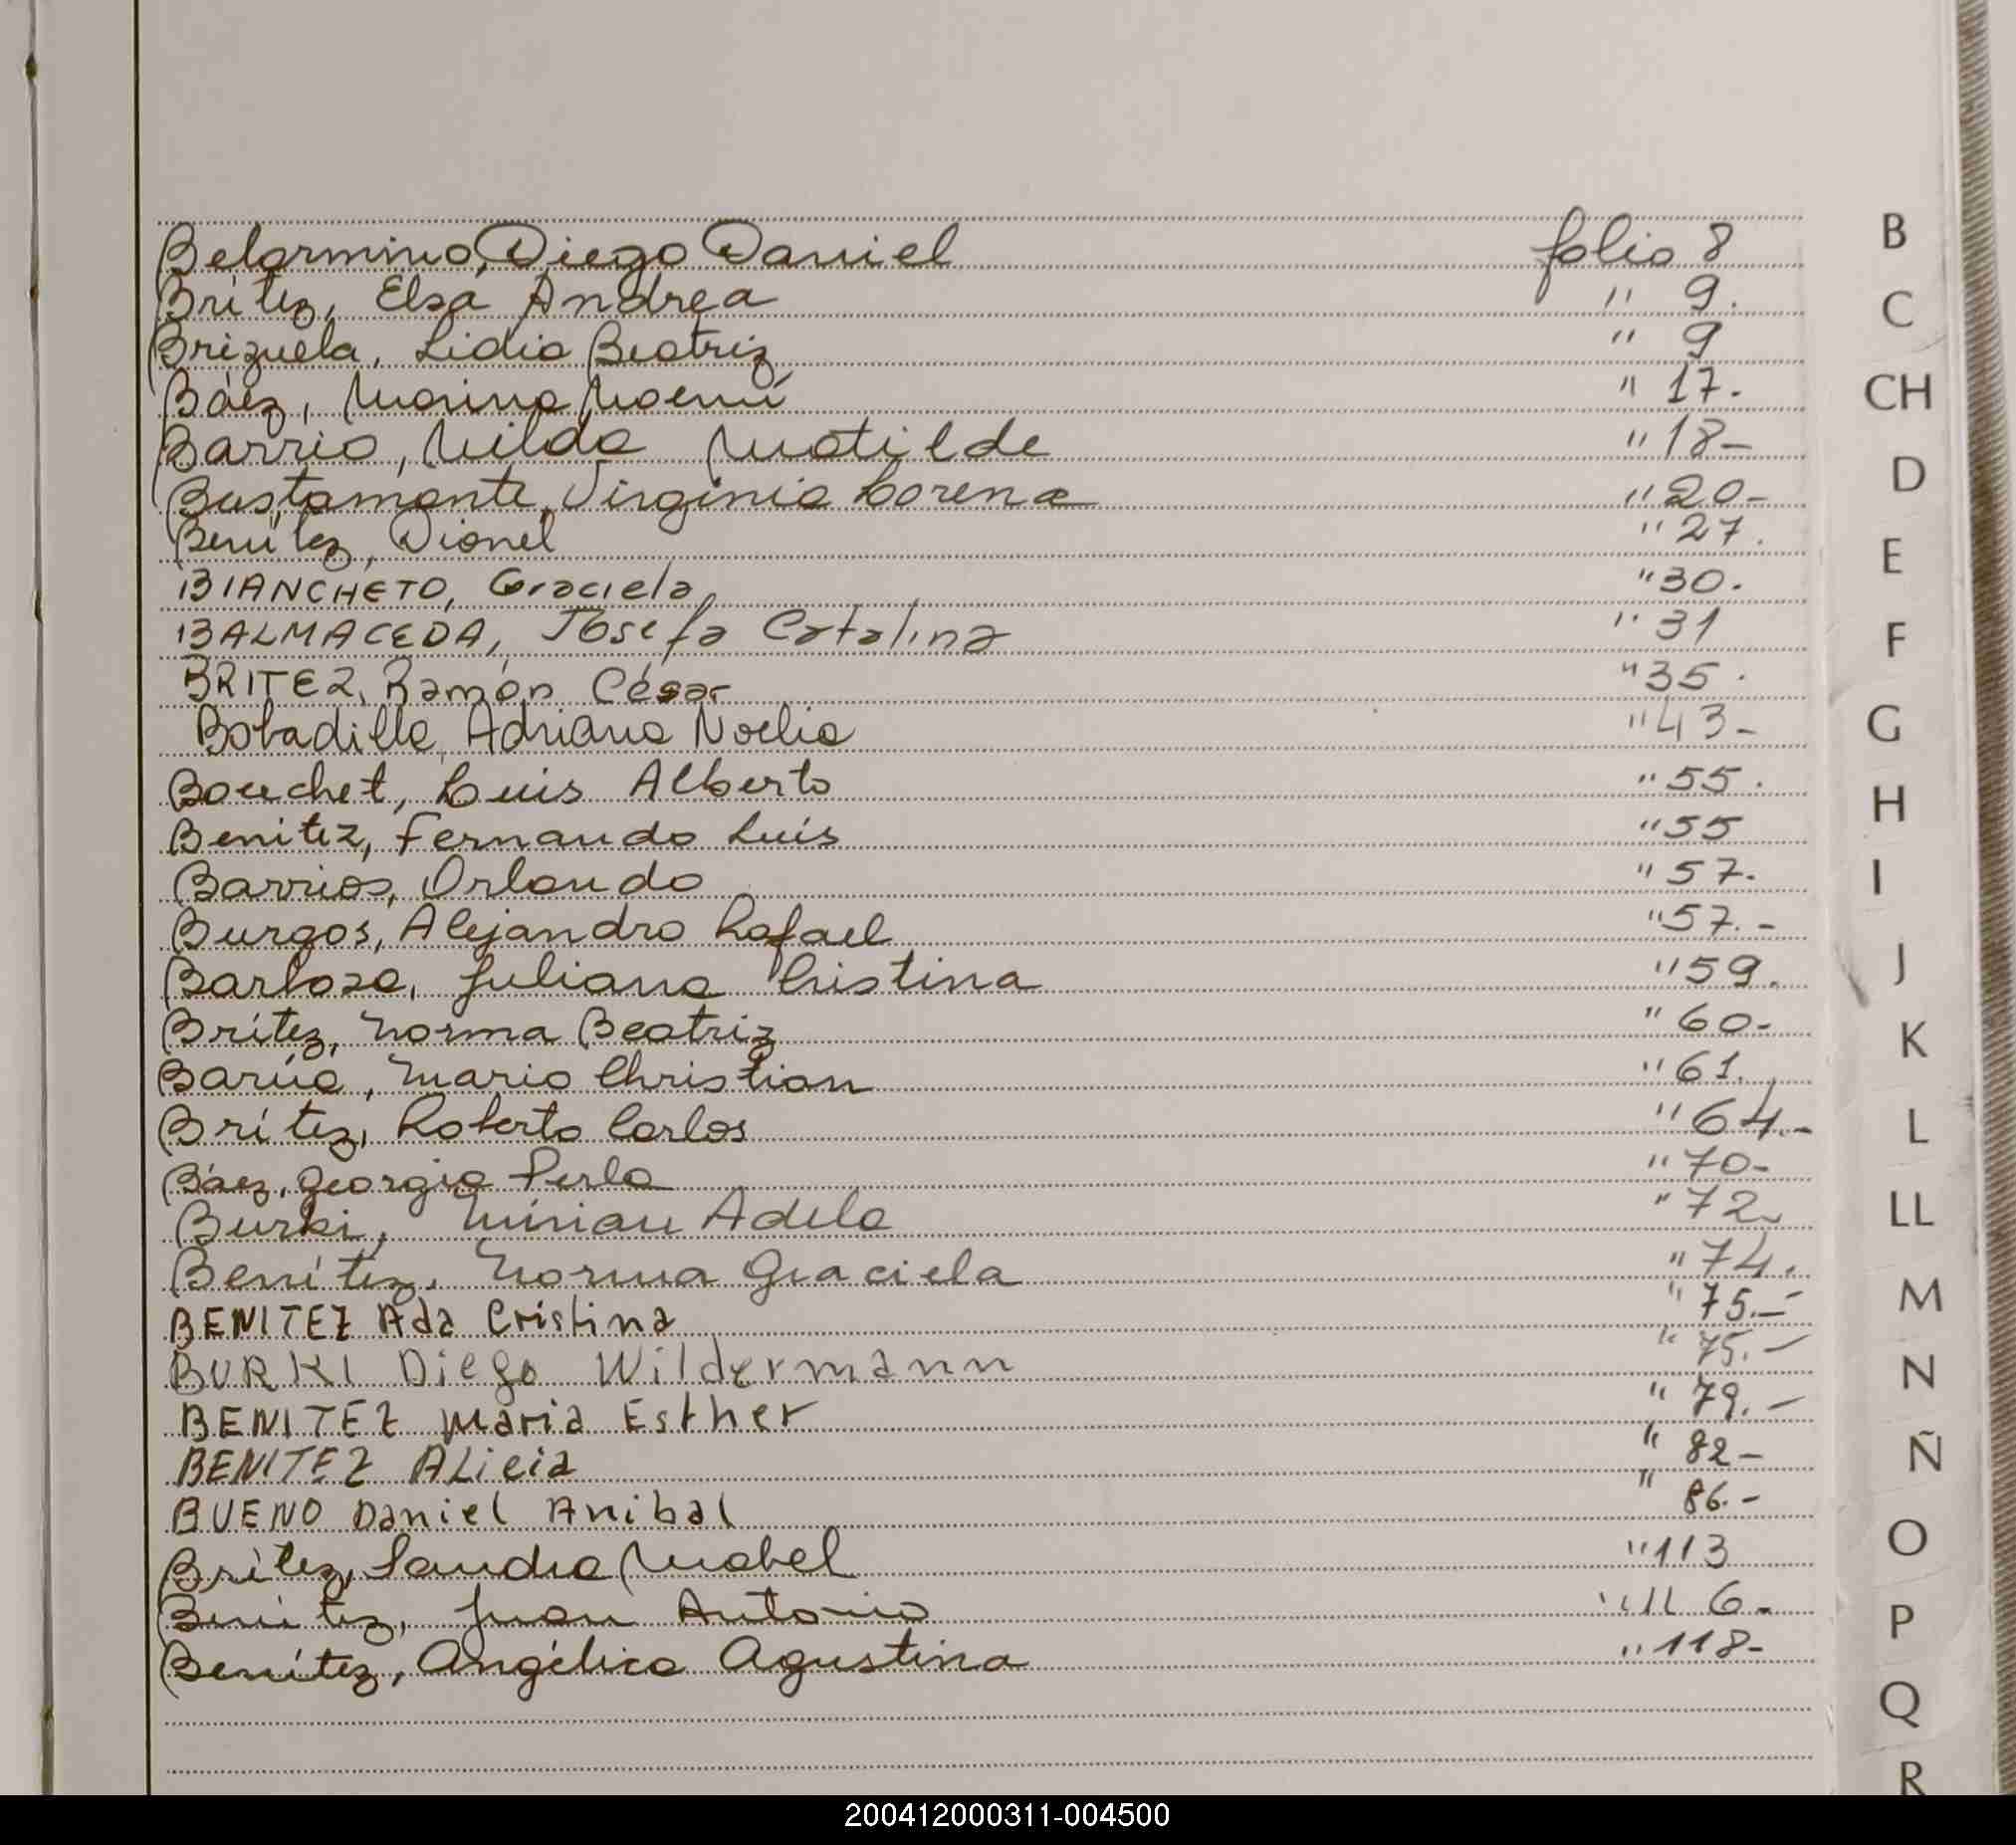 Belarmino, Diego Daniel folio 8
Brítez, Elsa Andrea " 9.
Brizuela, Lidia Beatriz " 9
Báez, Marina Noemí " 17.
Barrio, Nilda Matilde " 18-
Bustamante, Virginia Lorena " 20-
Benítez, Dionel " 27.
BIANCHETO, Graciela " 30.
BALMACEDA, Josefa Catalina " 31
BRITEZ, Ramón César " 35.
Bobadilla, Adriana Noelia " 43-
Bouchet, Luis Alberto " 55.
Benitez, Fernando Luis " 55
Barrios, Orlando " 57.
Burgos, Alejandro Rafael " 57.-
Barboza, Juliana Cristina " 59.
Brítez, Norma Beatriz " 60-
Barúa, Mario Christian " 61.
Brítez, Roberto Carlos " 64.-
Báez, Georgia Perla " 70-
Burki, Mirian Adela " 72.
Benítez, Norma Graciela " 74.
BENITEZ Ada Cristina " 75.-
BURKI Diego Wildermann " 75.-
BENITEZ María Esther " 79.-
BENITEZ ALicia " 82-
BUENO Daniel Anibal " 86.-
Brítez, Sandra Mabel " 113
Benítez, Juan Antonio " 116-
Benítez, Angélica Agustina " 118-
B
C
CH
D
E
F
G
H
I
J
K
L
LL
M
N
Ñ
O
P
Q
R
200412000311-004500